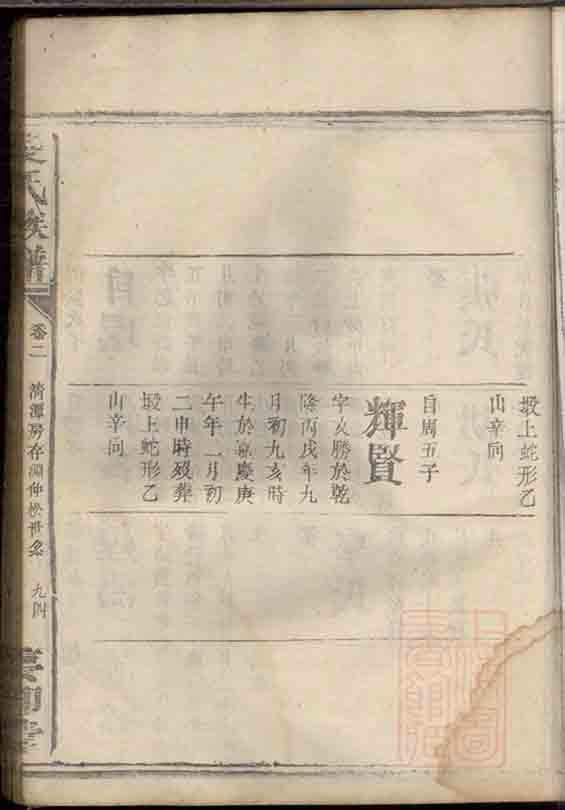 塅上蛇形乙
山辛向
自周五子
輝賢
字火勝於乾
隆丙戌年九
月初九亥時
生於嘉慶庚
午年二月初
二申時歿葬
塅上蛇形乙
山辛向
氏族譜
卷二
清潭房存淵仲松世名
九四